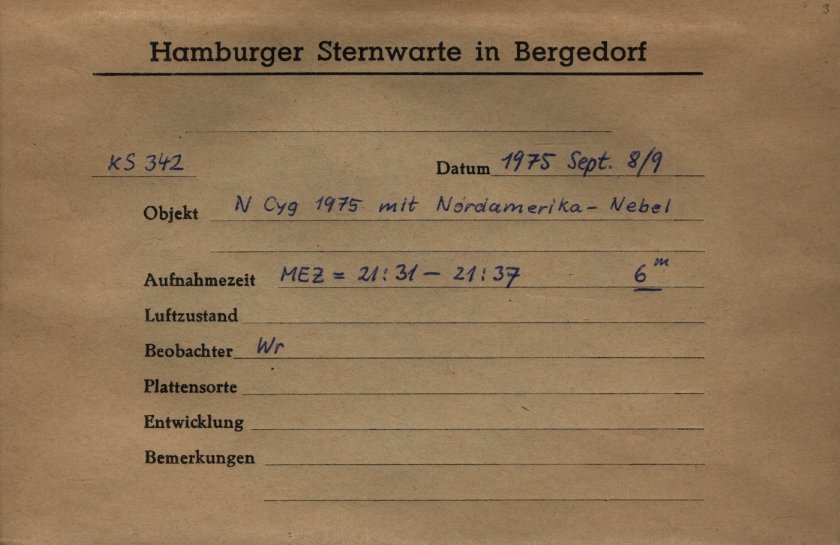 3
Hamburger Sternwarte in Bergedorf
KS 342 Datum 1975 Sept. 8/9
Objekt N Cyg 1975 mit Nordamerika-Nebel
Aufnahmezeit MEZ = 21:31 - 21:37 6m
Luftzustand
Beobachter Wr
Plattensorte
Entwicklung
Bemerkungen